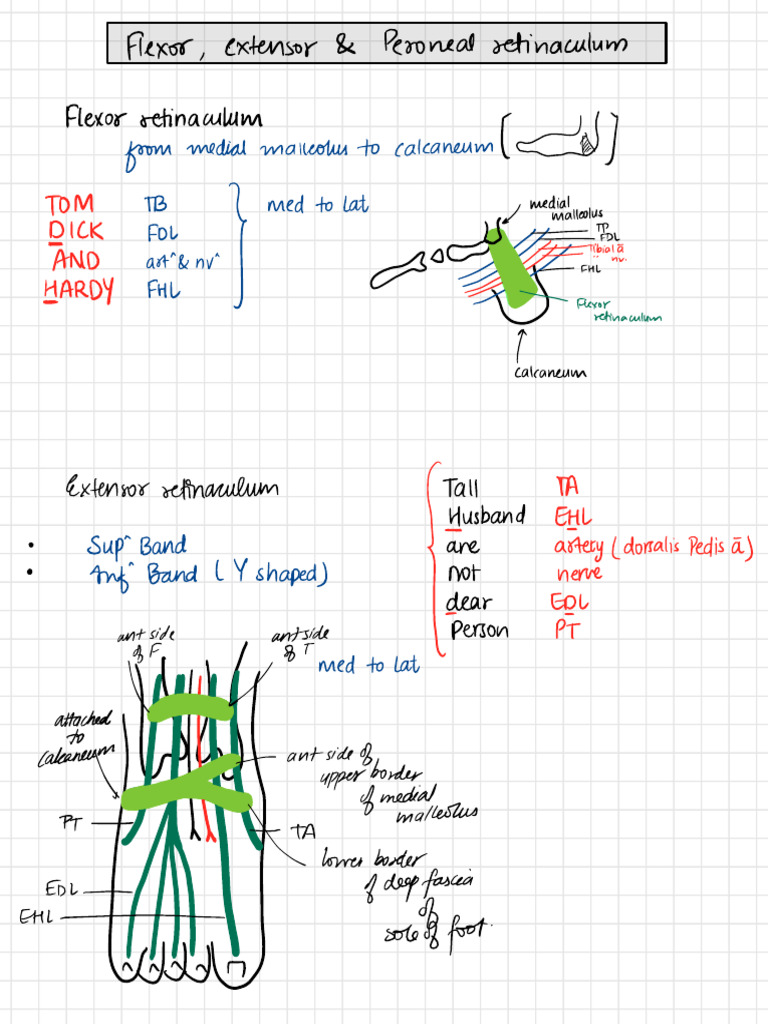 Flexor, extensor & Peroneal retinaculum
Flexor retinaculum
from medial malleolus to calcaneum
TOM TB
DICK FDL
AND art^ & nv^
HARDY FHL
med to lat
medial
malleolus
TP
FDL
Tibial ā
" nv.
FHL
Flexor
retinaculum
calcaneum
Extensor retinaculum
• Sup^ Band
• Inf^ Band (Y shaped)
Tall TA
Husband EHL
are artery (dorsalis Pedis ā)
not nerve
dear EDL
Person PT
med to lat
ant side
of F
ant side
of T
attached
to
calcaneum
ant side of
upper border
of medial
malleolus
PT
TA
lower border
of deep fascia
of
sole of foot.
EDL
EHL